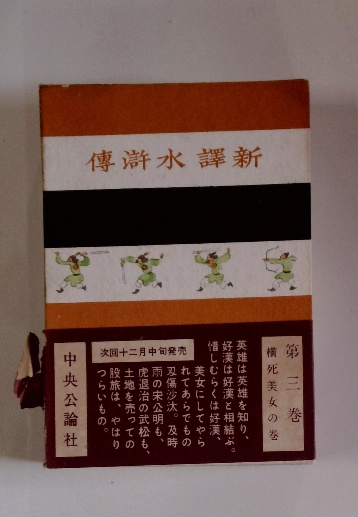 新譯水滸傳
第三巻
橫死美女の巻
英雄は英雄を知り、
好漢は好漢と相結ぶ。
惜しむらくは好漢、
美女にしてやら
れてあらでもの
刄傷沙汰。及時
雨の宋公明も、
虎退治の武松も、
土地を売っての
股旅は、やはり
つらいもの。
次回十二月中旬発売
中央公論社